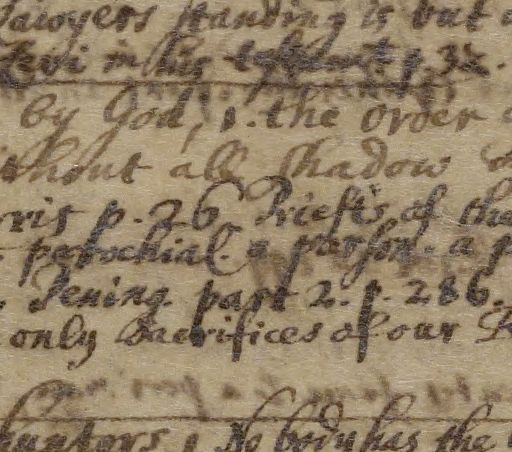 Lawyers standing is but
Levi in his p. 32.
by God, 1. the order
without all shadow
p. 26 Priests of the
parochial. a parson. a
Jening. part 2. p. 286.
only Sacrifices of our
hunters 1 No body has the